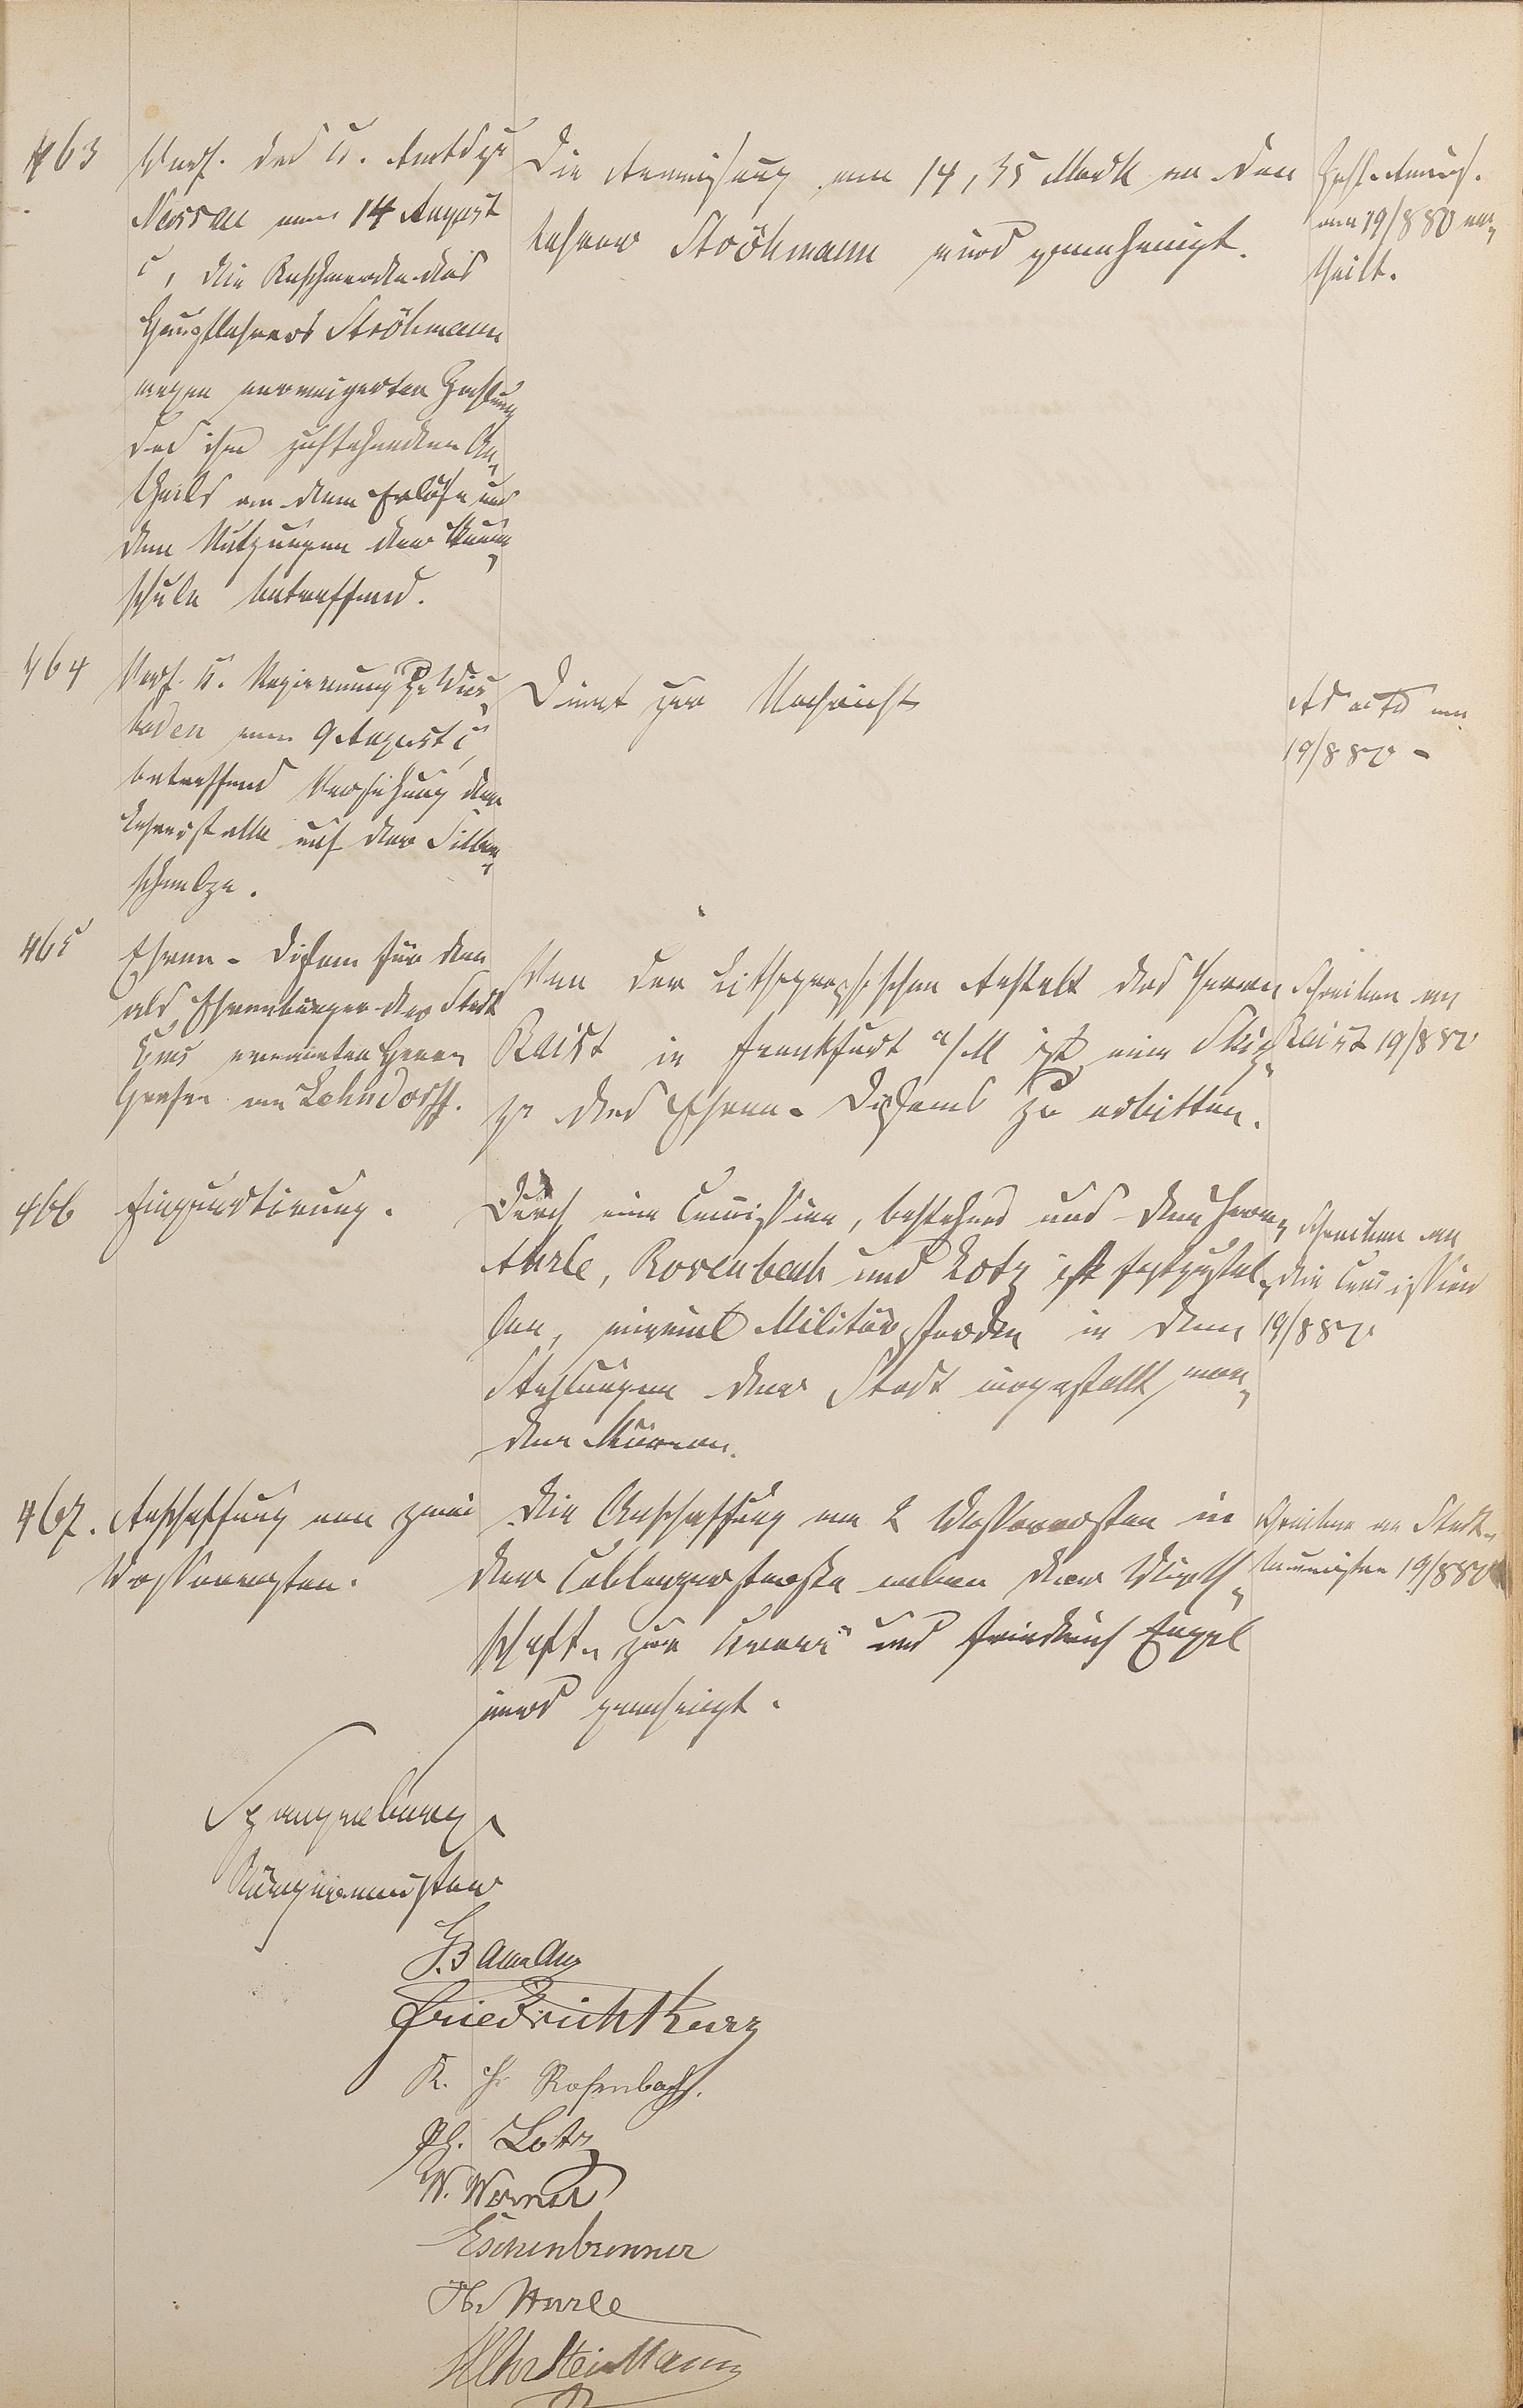 463
Verf. des K. Amts zu
Nassau vom 14 August
c, die Beschwerde des
Hauptlehrers Ströhmann
wegen verweigerten Zahlung
des ihm zustehenden An-
theils an dem Erlöse und
den Nutzungen der Baum-
schule betreffend.
Die Anweisung von 14,35 Mark an den
Lehrer Ströhmann wird genehmigt.
Zahl. Anweis.
am 19/8 80 er-
theilt.
464
Verf. K. Regierung zu Wies-
baden vom 9 August c,
betreffend Versehung der
Lehrerstelle auf der Silber-
schmelze.
Dient zur Nachricht
Ad acta am
19/8 80 -
465
Ehren-Diplom für den
als Ehrenbürger der Stadt
Ems ernannten Herrn
Grafen von Lehndorff.
Von der Lithographischen Anstalt des Herrn
Raist in Frankfurt a/M ist eine Skiz-
ze des Ehren-Diploms zu erbitten.
Schreiben an
Raist 19/8 80
466
Einquartierung.
Durch eine Commission, bestehend aus den Herrn
Hurle, Rosenbach und Lotz ist festzustel-
len, wieviel Militärpferde in den
Stallungen der Stadt eingestellt wer-
den können.
Schreiben an
die Commission
19/8 80
467.
Anschaffung von zwei
Wasserkrahnen.
Die Anschaffung von 2 in
der Coblenzerstraße neben der Wirth-
schaft „zur Krone" und Friedrich Engel
wird genehmigt.
Schreiben an Stadt-
baumeister 19/8 80
Spangenberg
Bürgermeister
J. Baum
Friedrich Kurz
K. Fr. Rosenbach.
Ph. Lotz
W. Werner
Eschenbrenner
H. Hurle